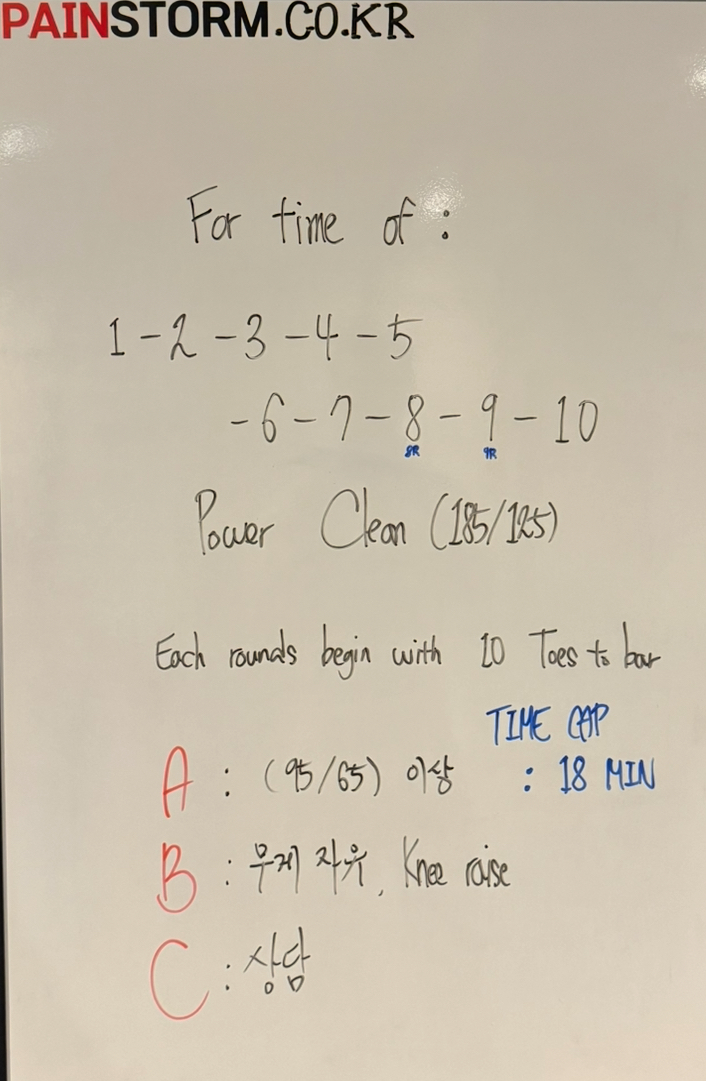 PAINSTORM.CO.KR
For time of :
1-2-3-4-5
-6-7-8-9-10
8R 9R
Power Clean (185/125)
Each rounds begin with 10 Toes to bar
TIME CAP
: 18 MIN
A : (95/65) 이상
B : 무게 자유, Knee raise
C : 상담